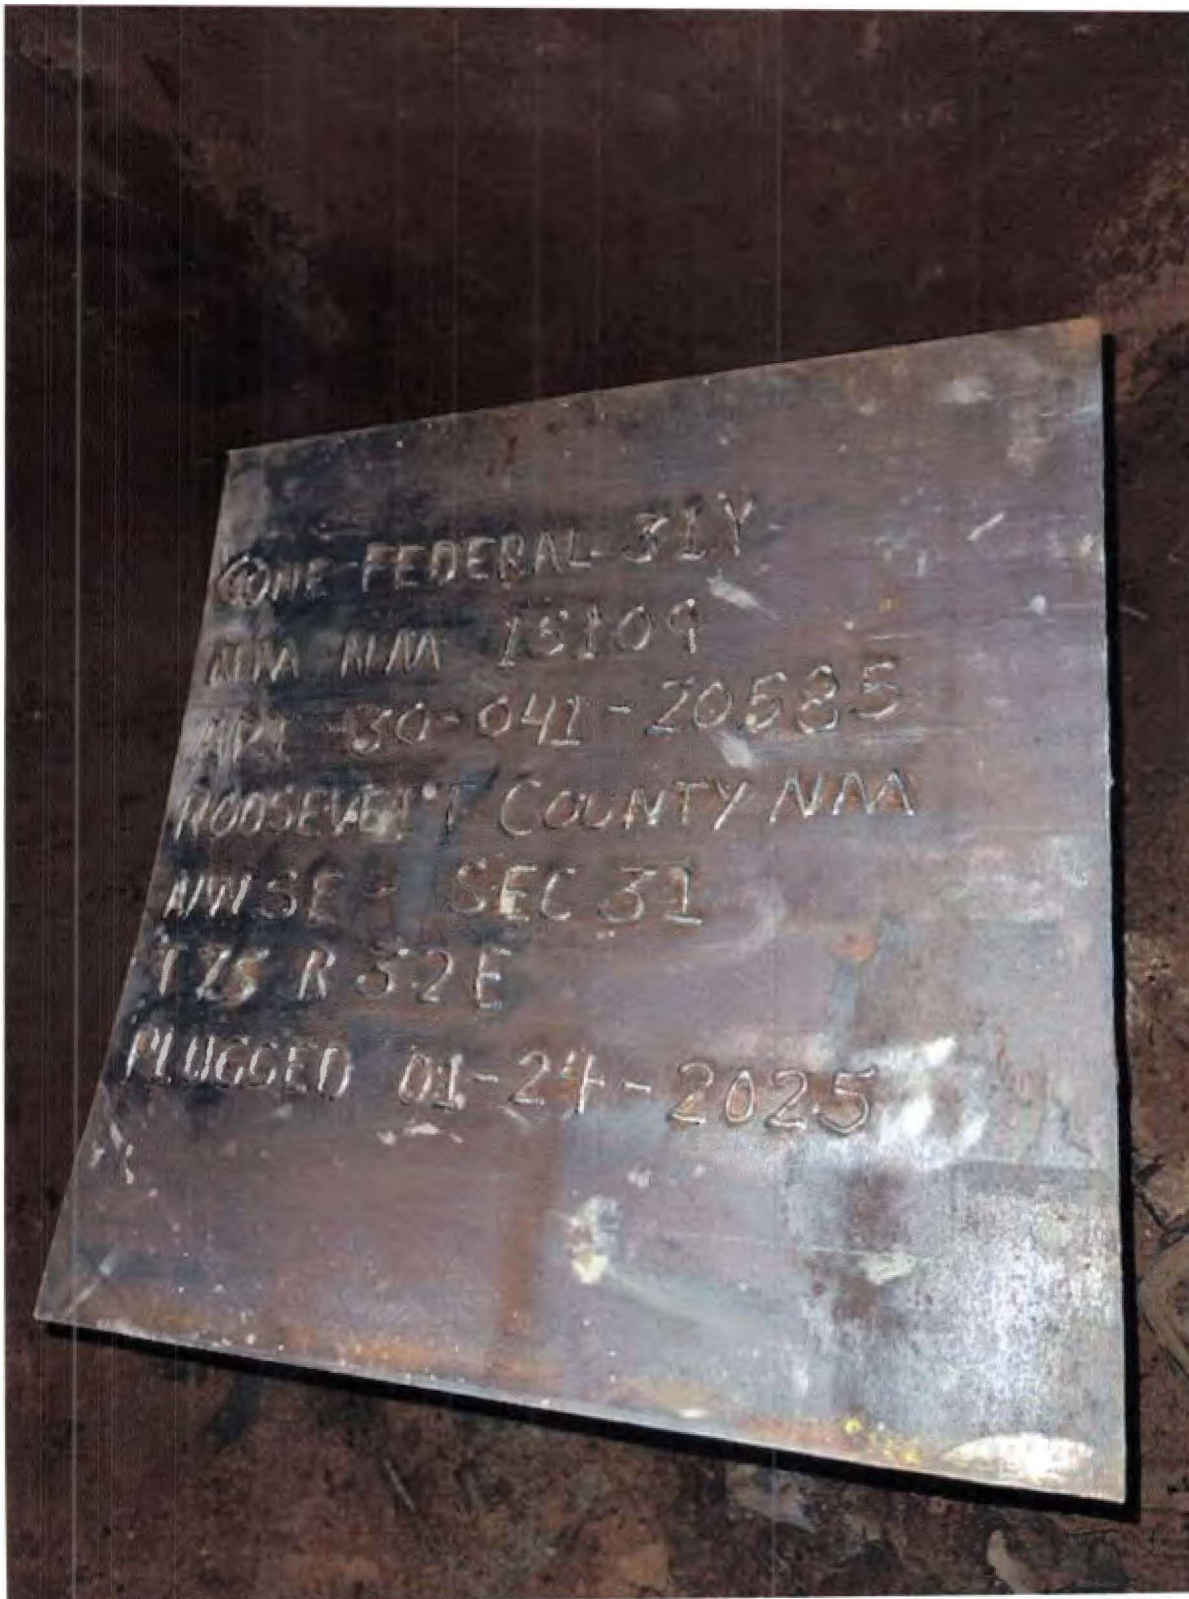 CONE FEDERAL 31Y
NM NM 15109
API 30-041-20585
ROOSEVELT COUNTY NM
NWSE - SEC 31
R 32E
PLUGGED 01-24-2025